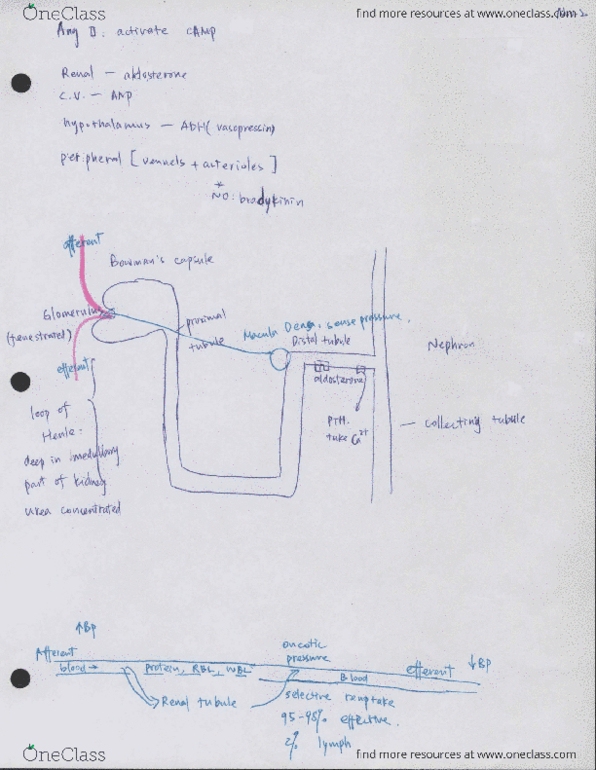 OneClass
find more resources at www.oneclass.com
Ang II: activate cAMP
Renal — aldosterone
C.V. — ANP
hypothalamus — ADH (vasopressin)
peripheral [vennels + arterioles]
*
NO: bradykinin
afferent
Bowman's capsule
Glomerulus
(fenestrated)
proximal
tubule
Macula Densa, sense pressure.
Distal tubule
Nephron
efferent
aldosterone
loop of
Henle:
deep in medullary
part of kidney
urea concentrated
PTH.
take Ca2+
— collecting tubule
↑BP
Afferent
blood →
protein, RBC, WBC
oncotic
pressure
Blood
efferent
↓BP
Renal tubule
selective reuptake
95-98% effective.
2% lymph
OneClass
find more resources at www.oneclass.com